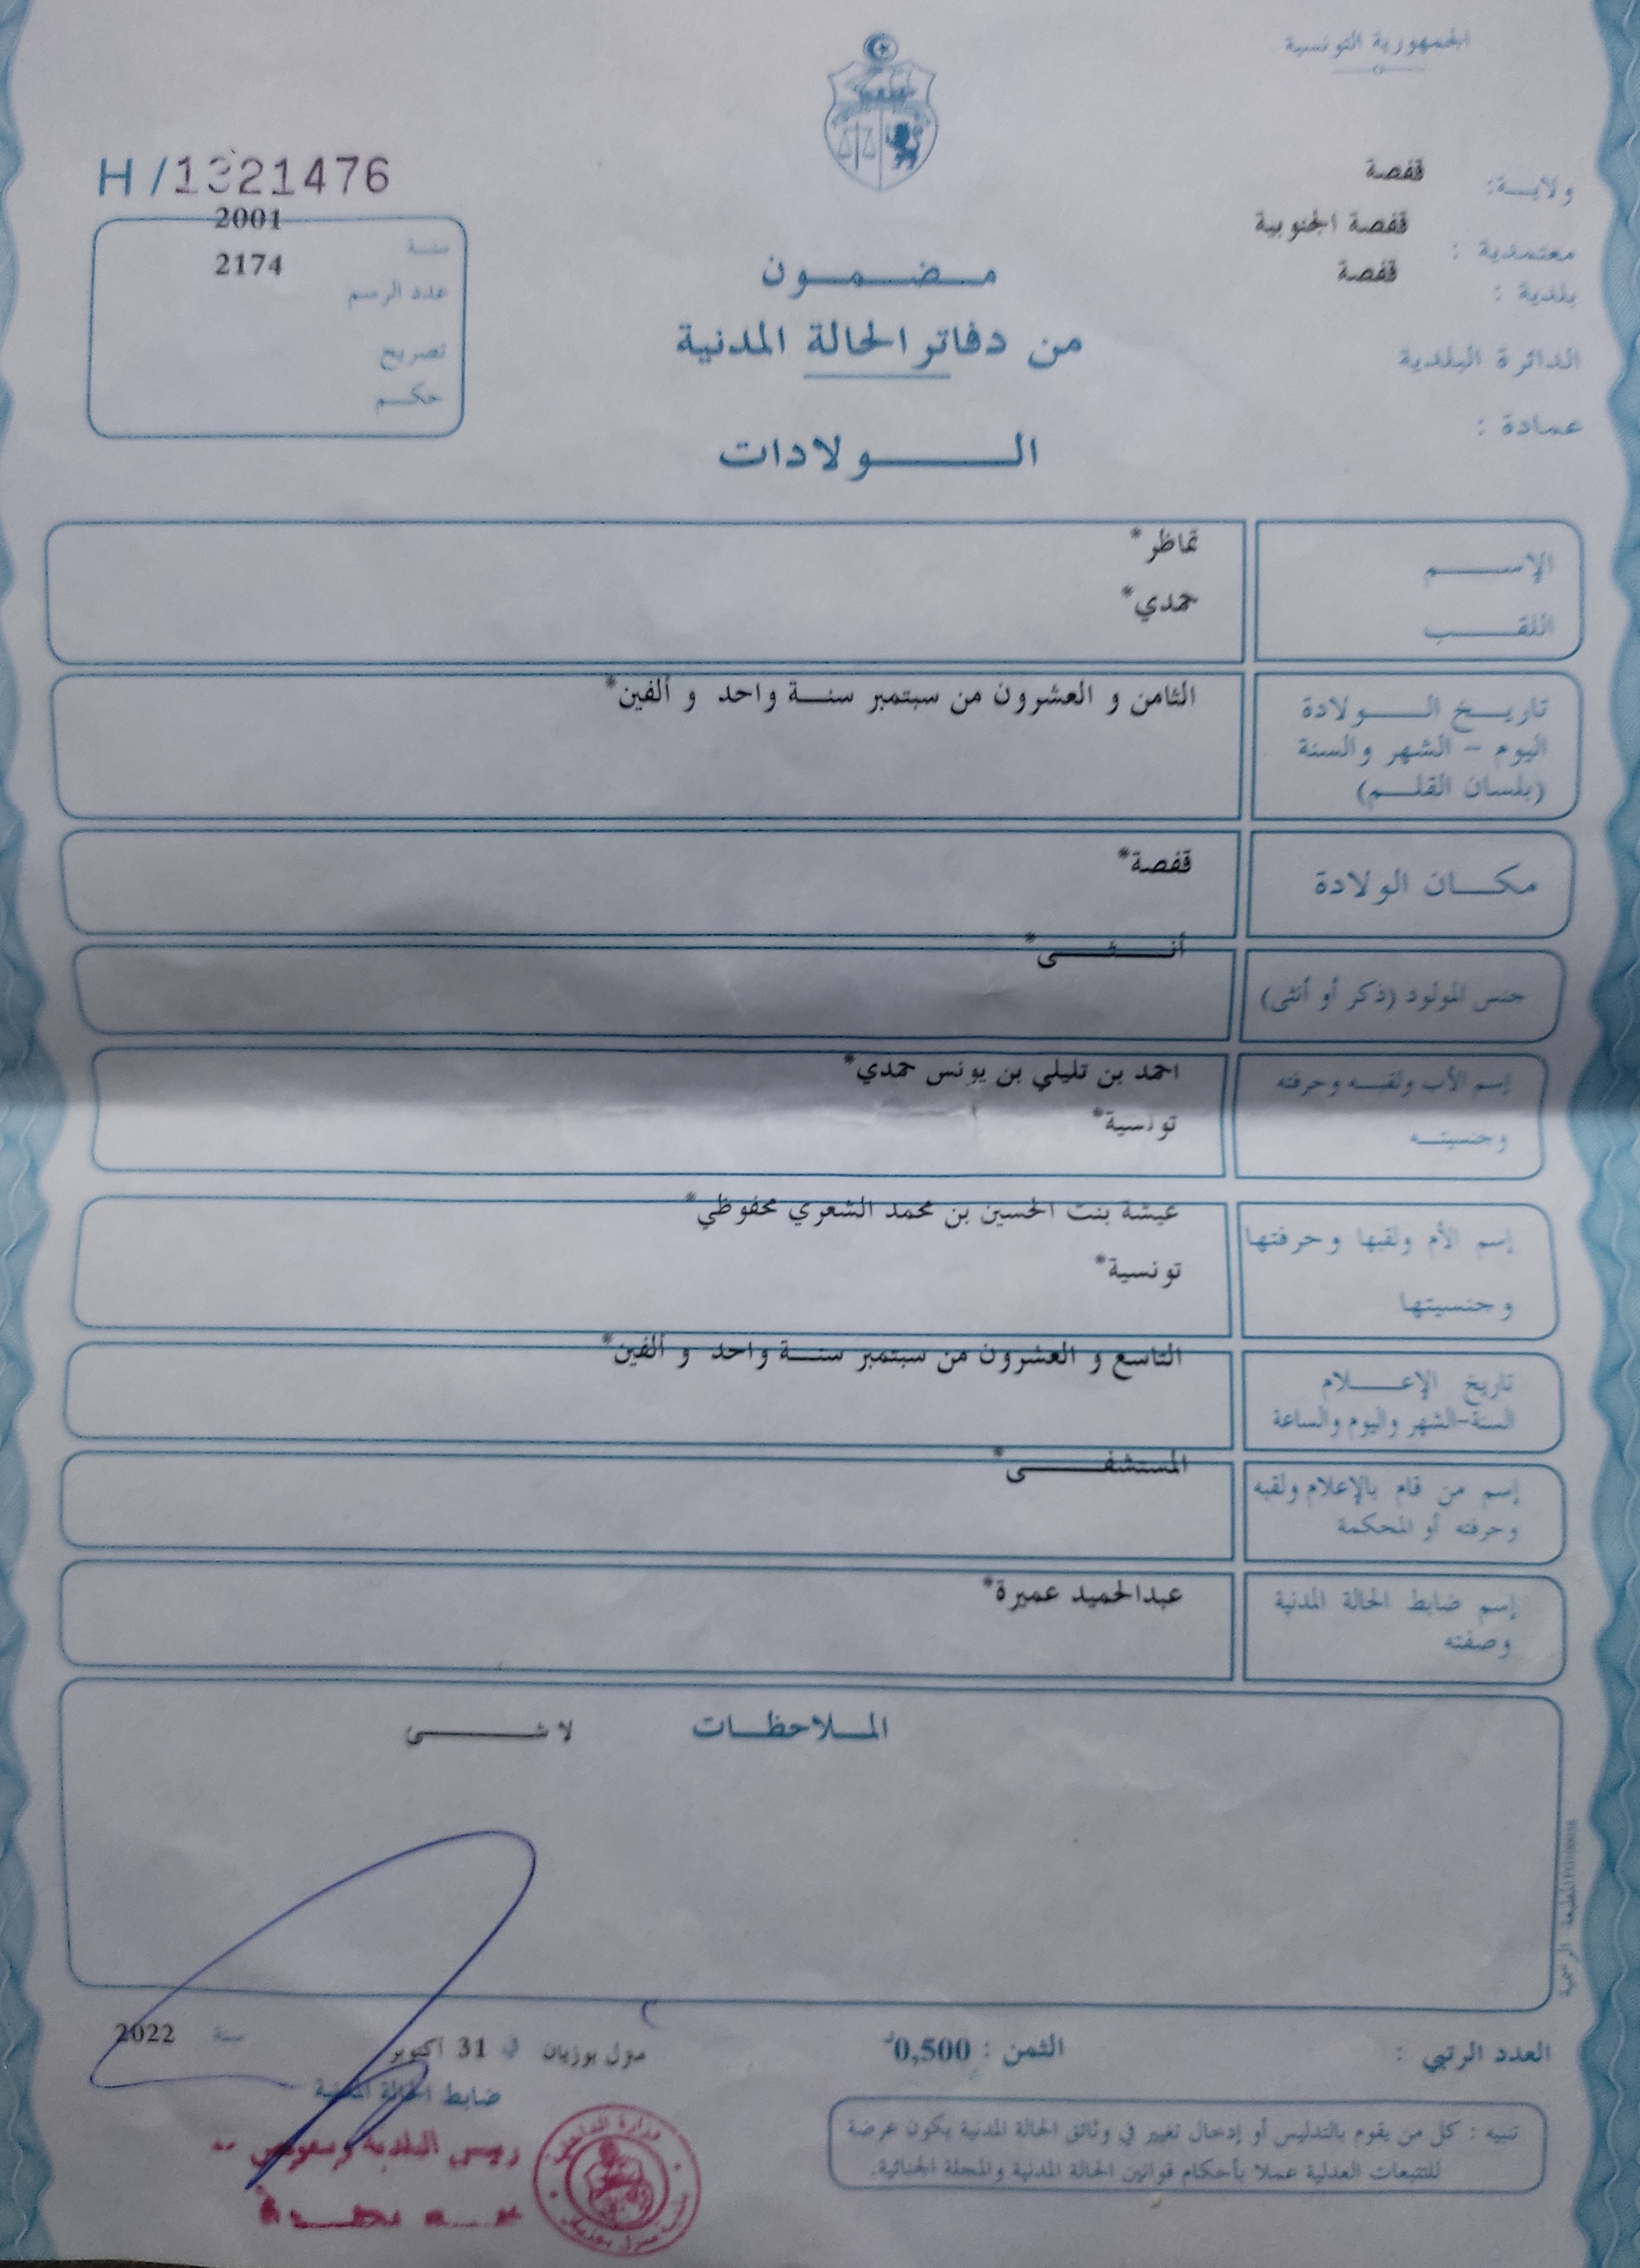 الجمهورية التونسية
ولايـــة: قفصة
معتمدية : قفصة الجنوبية
بلدية : قفصة
الدائرة البلدية
عمادة :
H/1321476
سنة 2001
عدد الرسم 2174
تصريح
حكـــم
مـــضـــمـــون
من دفاتر الحالة المدنية
الـــــولادات
الإســـــم تماظر*
اللقـــــب حمدي*
تاريـــخ الـــــولادة الثامن و العشرون من سبتمبر سنـــة واحد و ألفين*
اليوم - الشهر والسنة
(بلسان القلـــم)
مكـــان الولادة قفصة*
جنس المولود (ذكر أو أنثى) أنـــثـــى*
إسم الأب ولقبـــه وحرفته احمد بن تليلي بن يونس حمدي*
وجنسيتـــه تونسية*
إسم الأم ولقبها وحرفتها عيشة بنت الحسين بن محمد الشعري محفوظي*
وجنسيتها تونسية*
تاريخ الإعـــلام التاسع و العشرون من سبتمبر سنـــة واحد و ألفين*
السنة-الشهر واليوم والساعة
إسم من قام بالإعلام ولقبه المستشفـــــى*
وحرفته أو المحكمة
إسم ضابط الحالة المدنية عبدالحميد عميرة*
وصفته
المـــلاحظـــات لاشـــــى
المطبعة الرسمية
العدد الرتبي :
الثمن : 0,500د
منزل بوزيان في 31 أكتوبر سنة 2022
ضابط الحالة المدنية
رئيس البلدية
تنبيه : كل من يقوم بالتدليس أو إدخال تغيير في وثائق الحالة المدنية يكون عرضة
للتتبعات العدلية عملا بأحكام قوانين الحالة المدنية والمجلة الجنائية.